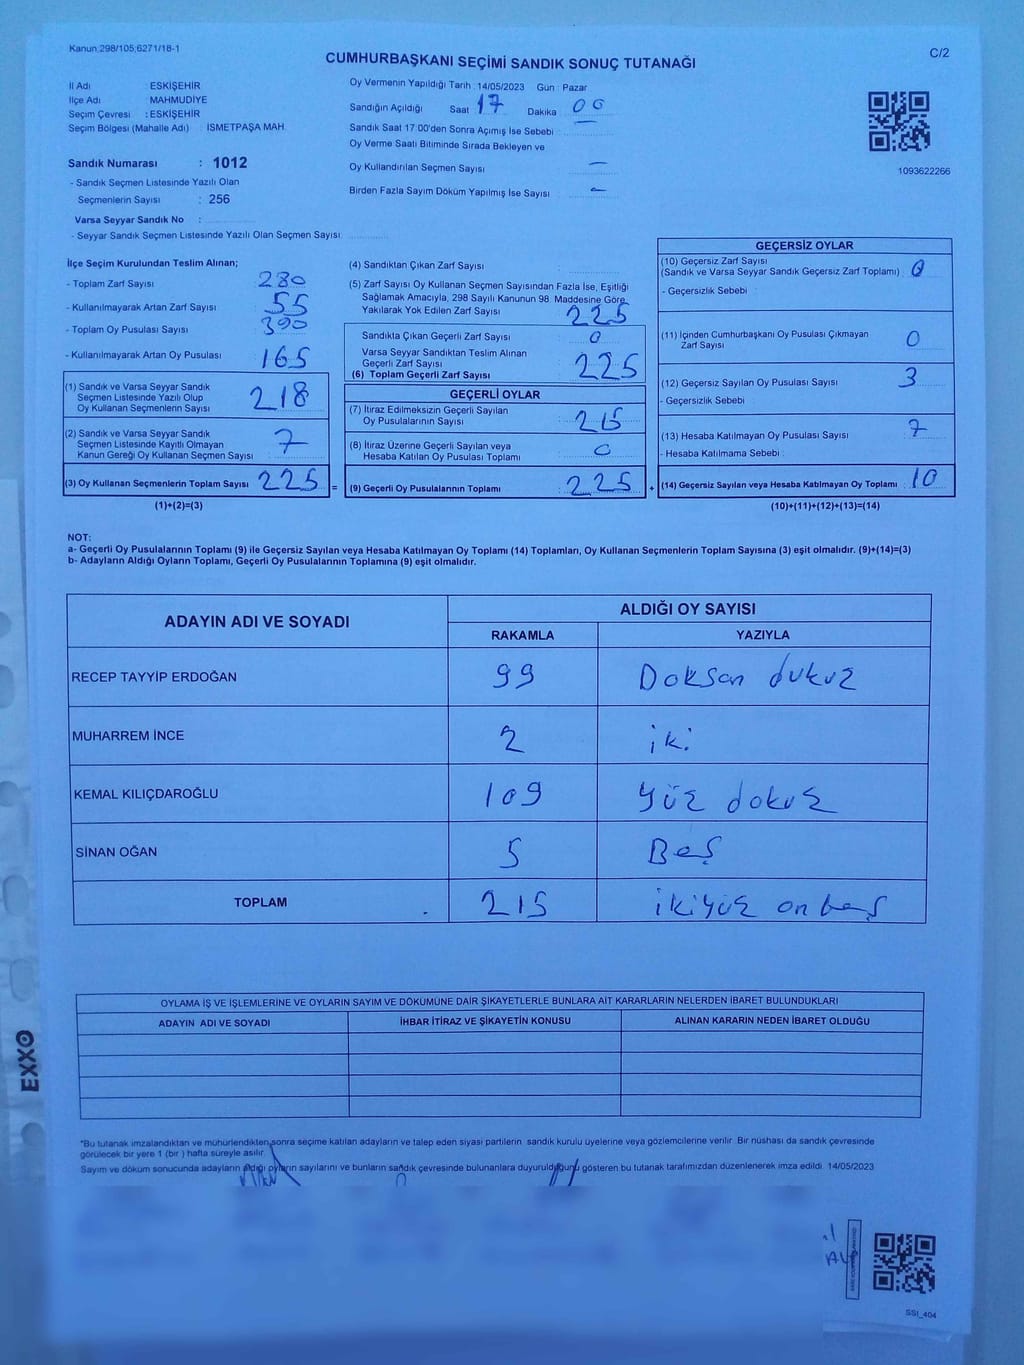 Kanun;298/105;6271/18-1
C/2
CUMHURBAŞKANI SEÇİMİ SANDIK SONUÇ TUTANAĞI
İl Adı ESKİŞEHİR
İlçe Adı MAHMUDİYE
Seçim Çevresi : ESKİŞEHİR
Seçim Bölgesi (Mahalle Adı) : İSMETPAŞA MAH.
Sandık Numarası : 1012
- Sandık Seçmen Listesinde Yazılı Olan
Seçmenlerin Sayısı : 256
Varsa Seyyar Sandık No :
- Seyyar Sandık Seçmen Listesinde Yazılı Olan Seçmen Sayısı:
Oy Vermenin Yapıldığı Tarih : 14/05/2023 Gün : Pazar
Sandığın Açıldığı Saat 17 Dakika 00
Sandık Saat 17:00'den Sonra Açımış İse Sebebi :
Oy Verme Saati Bitiminde Sırada Bekleyen ve
Oy Kullandırılan Seçmen Sayısı : —
Birden Fazla Sayım Döküm Yapılmış İse Sayısı : —
1093622266
İlçe Seçim Kurulundan Teslim Alınan;
- Toplam Zarf Sayısı : 280
- Kullanılmayarak Artan Zarf Sayısı : 55
- Toplam Oy Pusulası Sayısı : 390
- Kullanılmayarak Artan Oy Pusulası : 165
(1) Sandık ve Varsa Seyyar Sandık
Seçmen Listesinde Yazılı Olup
Oy Kullanan Seçmenlerin Sayısı : 218
(2) Sandık ve Varsa Seyyar Sandık
Seçmen Listesinde Kayıtlı Olmayan
Kanun Gereği Oy Kullanan Seçmen Sayısı : 7
(3) Oy Kullanan Seçmenlerin Toplam Sayısı : 225 =
(1)+(2)=(3)
(4) Sandıktan Çıkan Zarf Sayısı :
(5) Zarf Sayısı Oy Kullanan Seçmen Sayısından Fazla İse, Eşitliği
Sağlamak Amacıyla, 298 Sayılı Kanunun 98. Maddesine Göre
Yakılarak Yok Edilen Zarf Sayısı : 225
Sandıkta Çıkan Geçerli Zarf Sayısı : 0
Varsa Seyyar Sandıktan Teslim Alınan
Geçerli Zarf Sayısı
(6) Toplam Geçerli Zarf Sayısı : 225
GEÇERLİ OYLAR
(7) İtiraz Edilmeksizin Geçerli Sayılan
Oy Pusulalarının Sayısı : 215
(8) İtiraz Üzerine Geçerli Sayılan veya
Hesaba Katılan Oy Pusulası Toplamı : 0
(9) Geçerli Oy Pusulalarının Toplamı : 225 +
GEÇERSİZ OYLAR
(10) Geçersiz Zarf Sayısı
(Sandık ve Varsa Seyyar Sandık Geçersiz Zarf Toplamı) : 0
- Geçersizlik Sebebi :
(11) İçinden Cumhurbaşkanı Oy Pusulası Çıkmayan
Zarf Sayısı : 0
(12) Geçersiz Sayılan Oy Pusulası Sayısı : 3
- Geçersizlik Sebebi :
(13) Hesaba Katılmayan Oy Pusulası Sayısı : 7
- Hesaba Katılmama Sebebi :
(14) Geçersiz Sayılan veya Hesaba Katılmayan Oy Toplamı : 10
(10)+(11)+(12)+(13)=(14)
NOT:
a- Geçerli Oy Pusulalarının Toplamı (9) ile Geçersiz Sayılan veya Hesaba Katılmayan Oy Toplamı (14) Toplamları, Oy Kullanan Seçmenlerin Toplam Sayısına (3) eşit olmalıdır. (9)+(14)=(3)
b- Adayların Aldığı Oyların Toplamı, Geçerli Oy Pusulalarının Toplamına (9) eşit olmalıdır.
ADAYIN ADI VE SOYADI ALDIĞI OY SAYISI
RAKAMLA YAZIYLA
RECEP TAYYİP ERDOĞAN 99 Doksan dukuz
MUHARREM İNCE 2 iki
KEMAL KILIÇDAROĞLU 109 yüz dokuz
SİNAN OĞAN 5 Beş
TOPLAM 215 ikiyüz onbeş
OYLAMA İŞ VE İŞLEMLERİNE VE OYLARIN SAYIM VE DÖKÜMÜNE DAİR ŞİKAYETLERLE BUNLARA AİT KARARLARIN NELERDEN İBARET BULUNDUKLARI
ADAYIN ADI VE SOYADI İHBAR İTİRAZ VE ŞİKAYETİN KONUSU ALINAN KARARIN NEDEN İBARET OLDUĞU
EXXO
*Bu tutanak imzalandıktan ve mühürlendikten sonra seçime katılan adayların ve talep eden siyasi partilerin sandık kurulu üyelerine veya gözlemcilerine verilir. Bir nüshası da sandık çevresinde
görülecek bir yere 1 (bir ) hafta süreyle asılır.
Sayım ve döküm sonucunda adayların aldığı oyların sayılarını ve bunların sandık çevresinde bulunanlara duyurulduğunu gösteren bu tutanak tarafımızdan düzenlenerek imza edildi. 14/05/2023
SSI_404